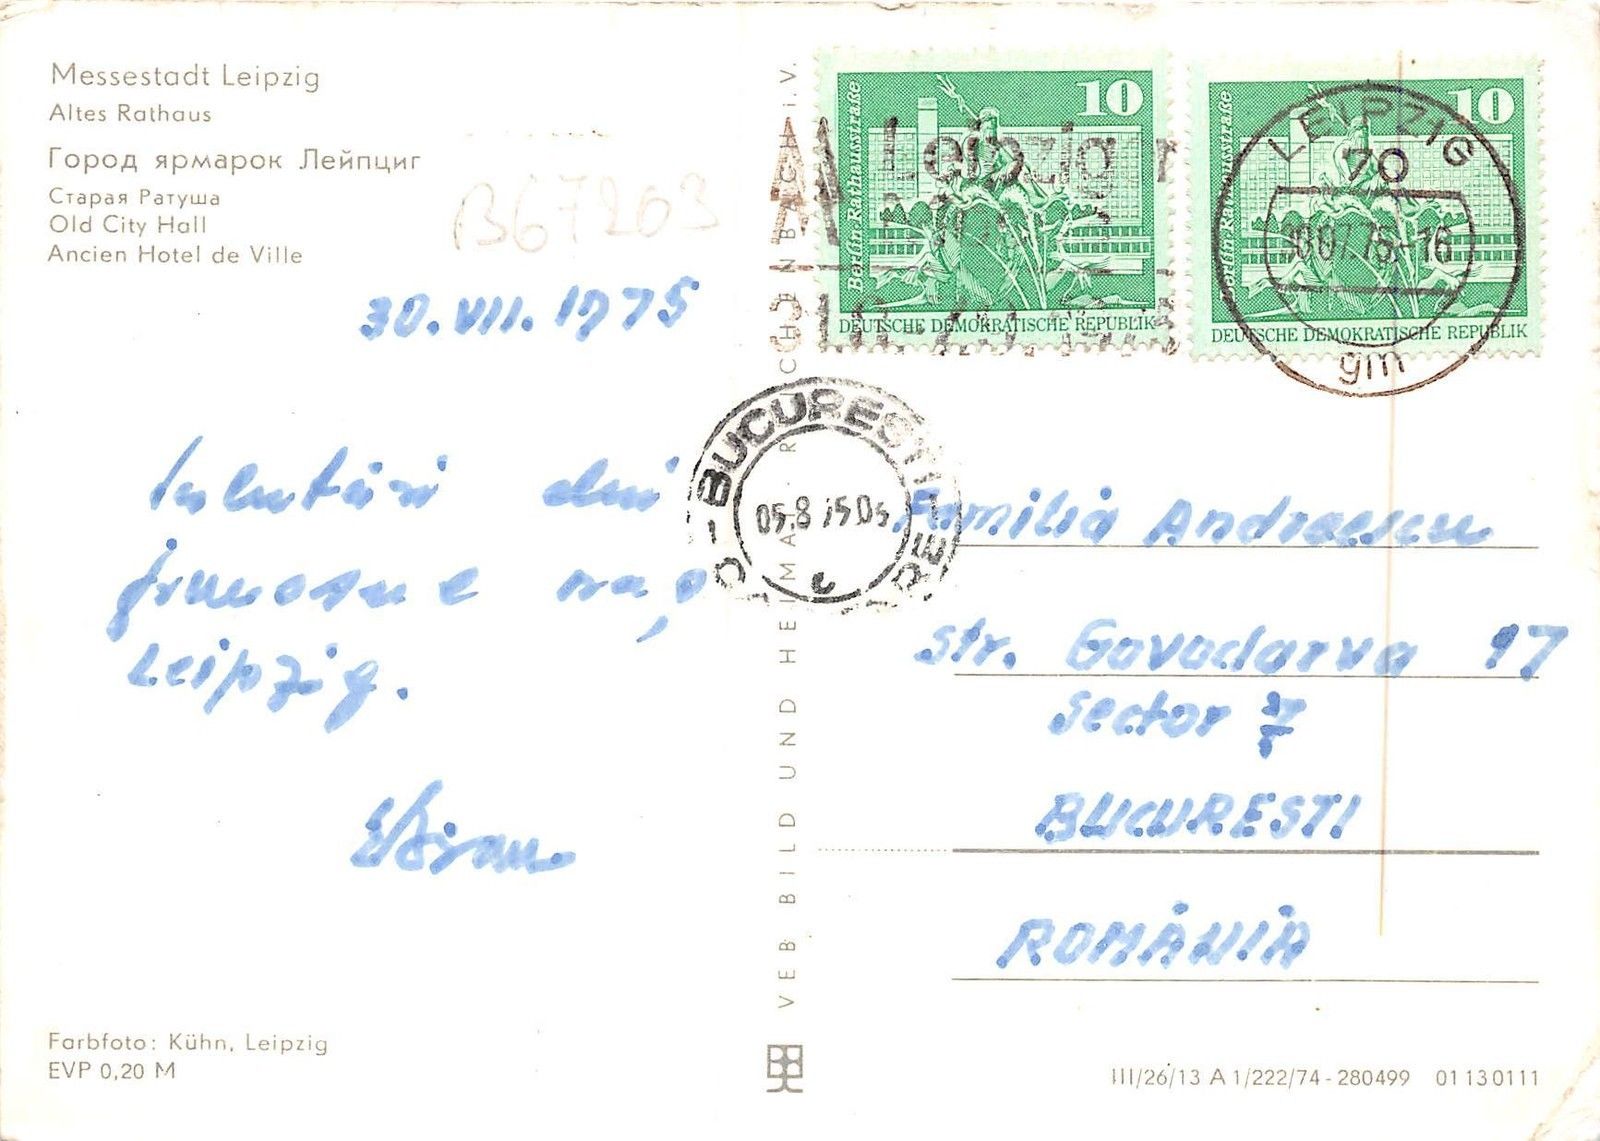 Messestadt Leipzig
Altes Rathaus
Город ярмарок Лейпциг
Старая Ратуша
Old City Hall
Ancien Hotel de Ville
B67203
30.VII.1975
Salutări din
frumosul oraș
Leipzig.
Farbfoto: Kühn, Leipzig
EVP 0,20 M
VEB BILD UND HEIMAT REICHENBACH i.V.
10
Berlin, Rathausstraße
DEUTSCHE DEMOKRATISCHE REPUBLIK
Leipzig
10
Berlin, Rathausstraße
DEUTSCHE DEMOKRATISCHE REPUBLIK
LEIPZIG
70
30.07.75-16
gm
BUCURESTI
05.8 75.05
c
Familia Andreescu
str. Govodarva 17
sector 7
BUCURESTI
ROMÂNIA
III/26/13 A 1/222/74-280499 01 13 0111